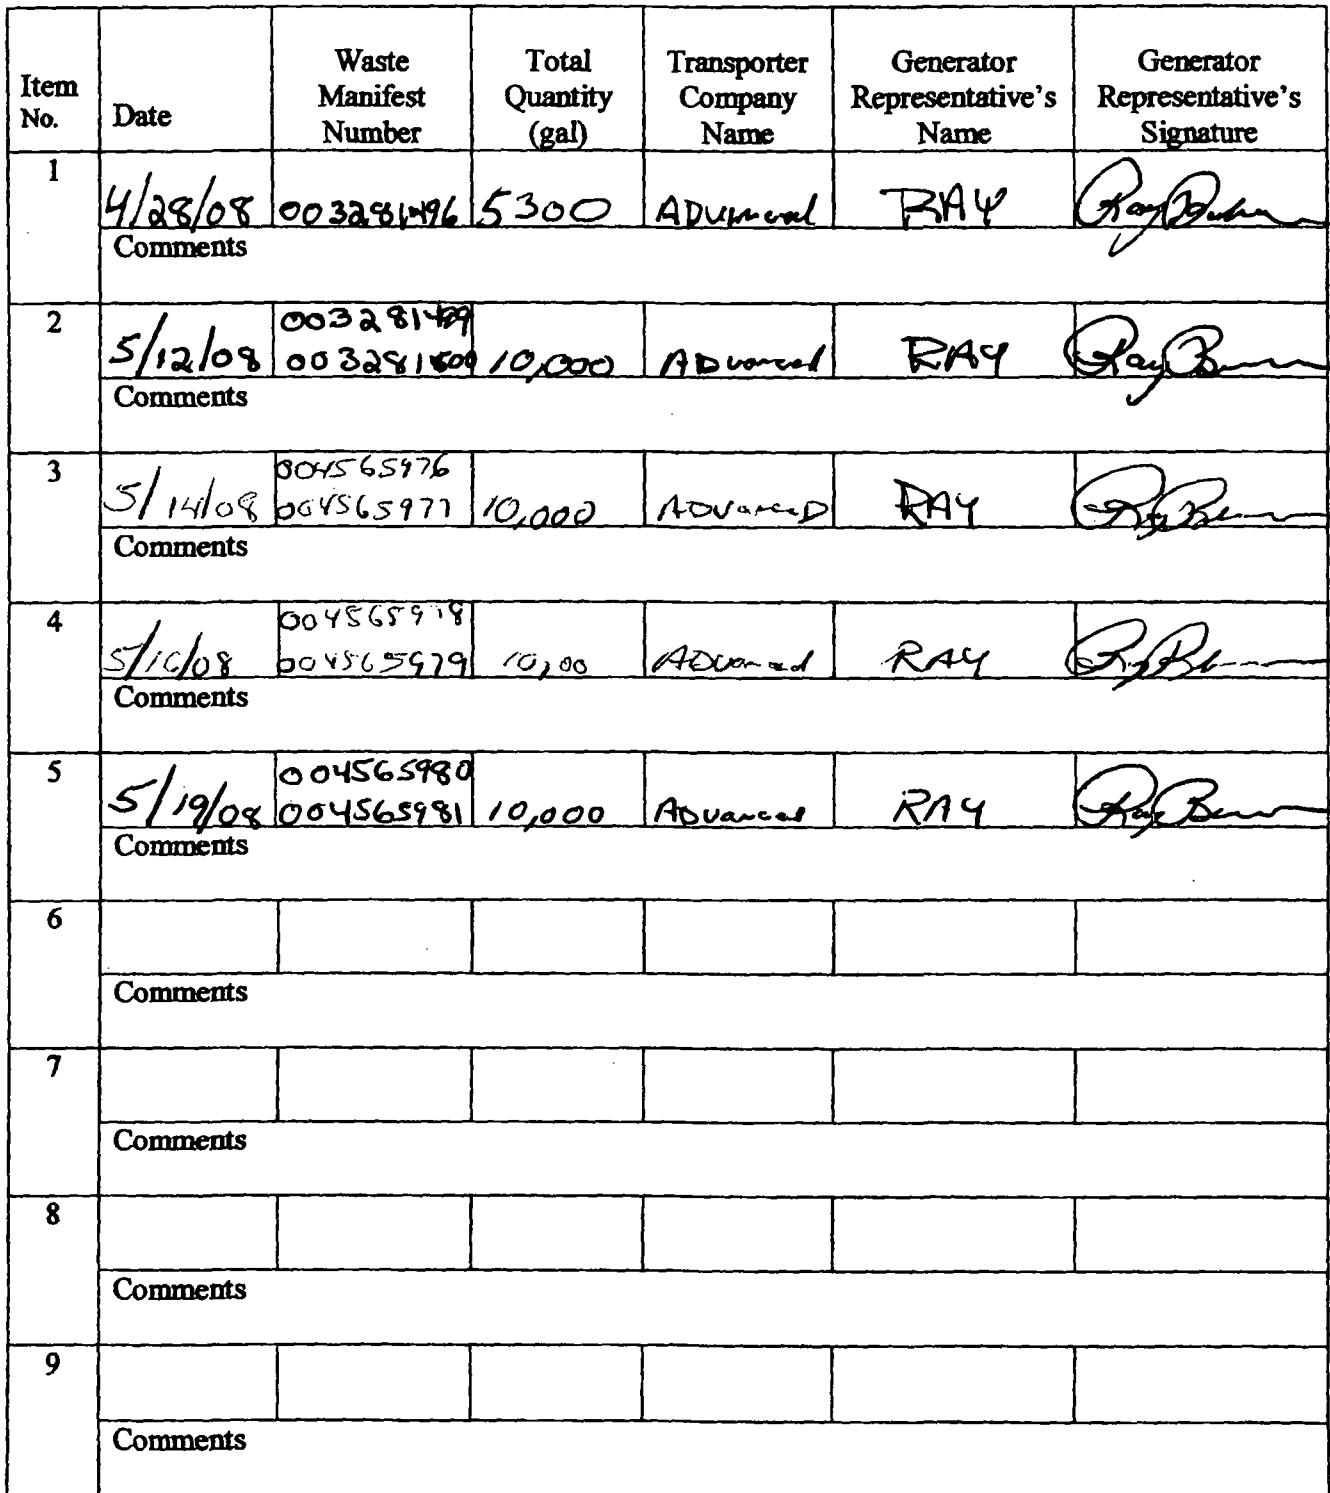 Item No. Date Waste Manifest Number Total Quantity (gal) Transporter Company Name Generator Representative's Name Generator Representative's Signature
1
4/28/08 003281496 5300 ADvanced RAY
Comments
2
003281499
5/12/08 003281500 10,000 ADvanced RAY
Comments
3
004565976
5/14/08 004565977 10,000 ADvanceD RAY
Comments
4
004565978
5/16/08 004565979 10,00 ADvanced RAY
Comments
5
004565980
5/19/08 004565981 10,000 ADvanced RAY
Comments
6
Comments
7
Comments
8
Comments
9
Comments